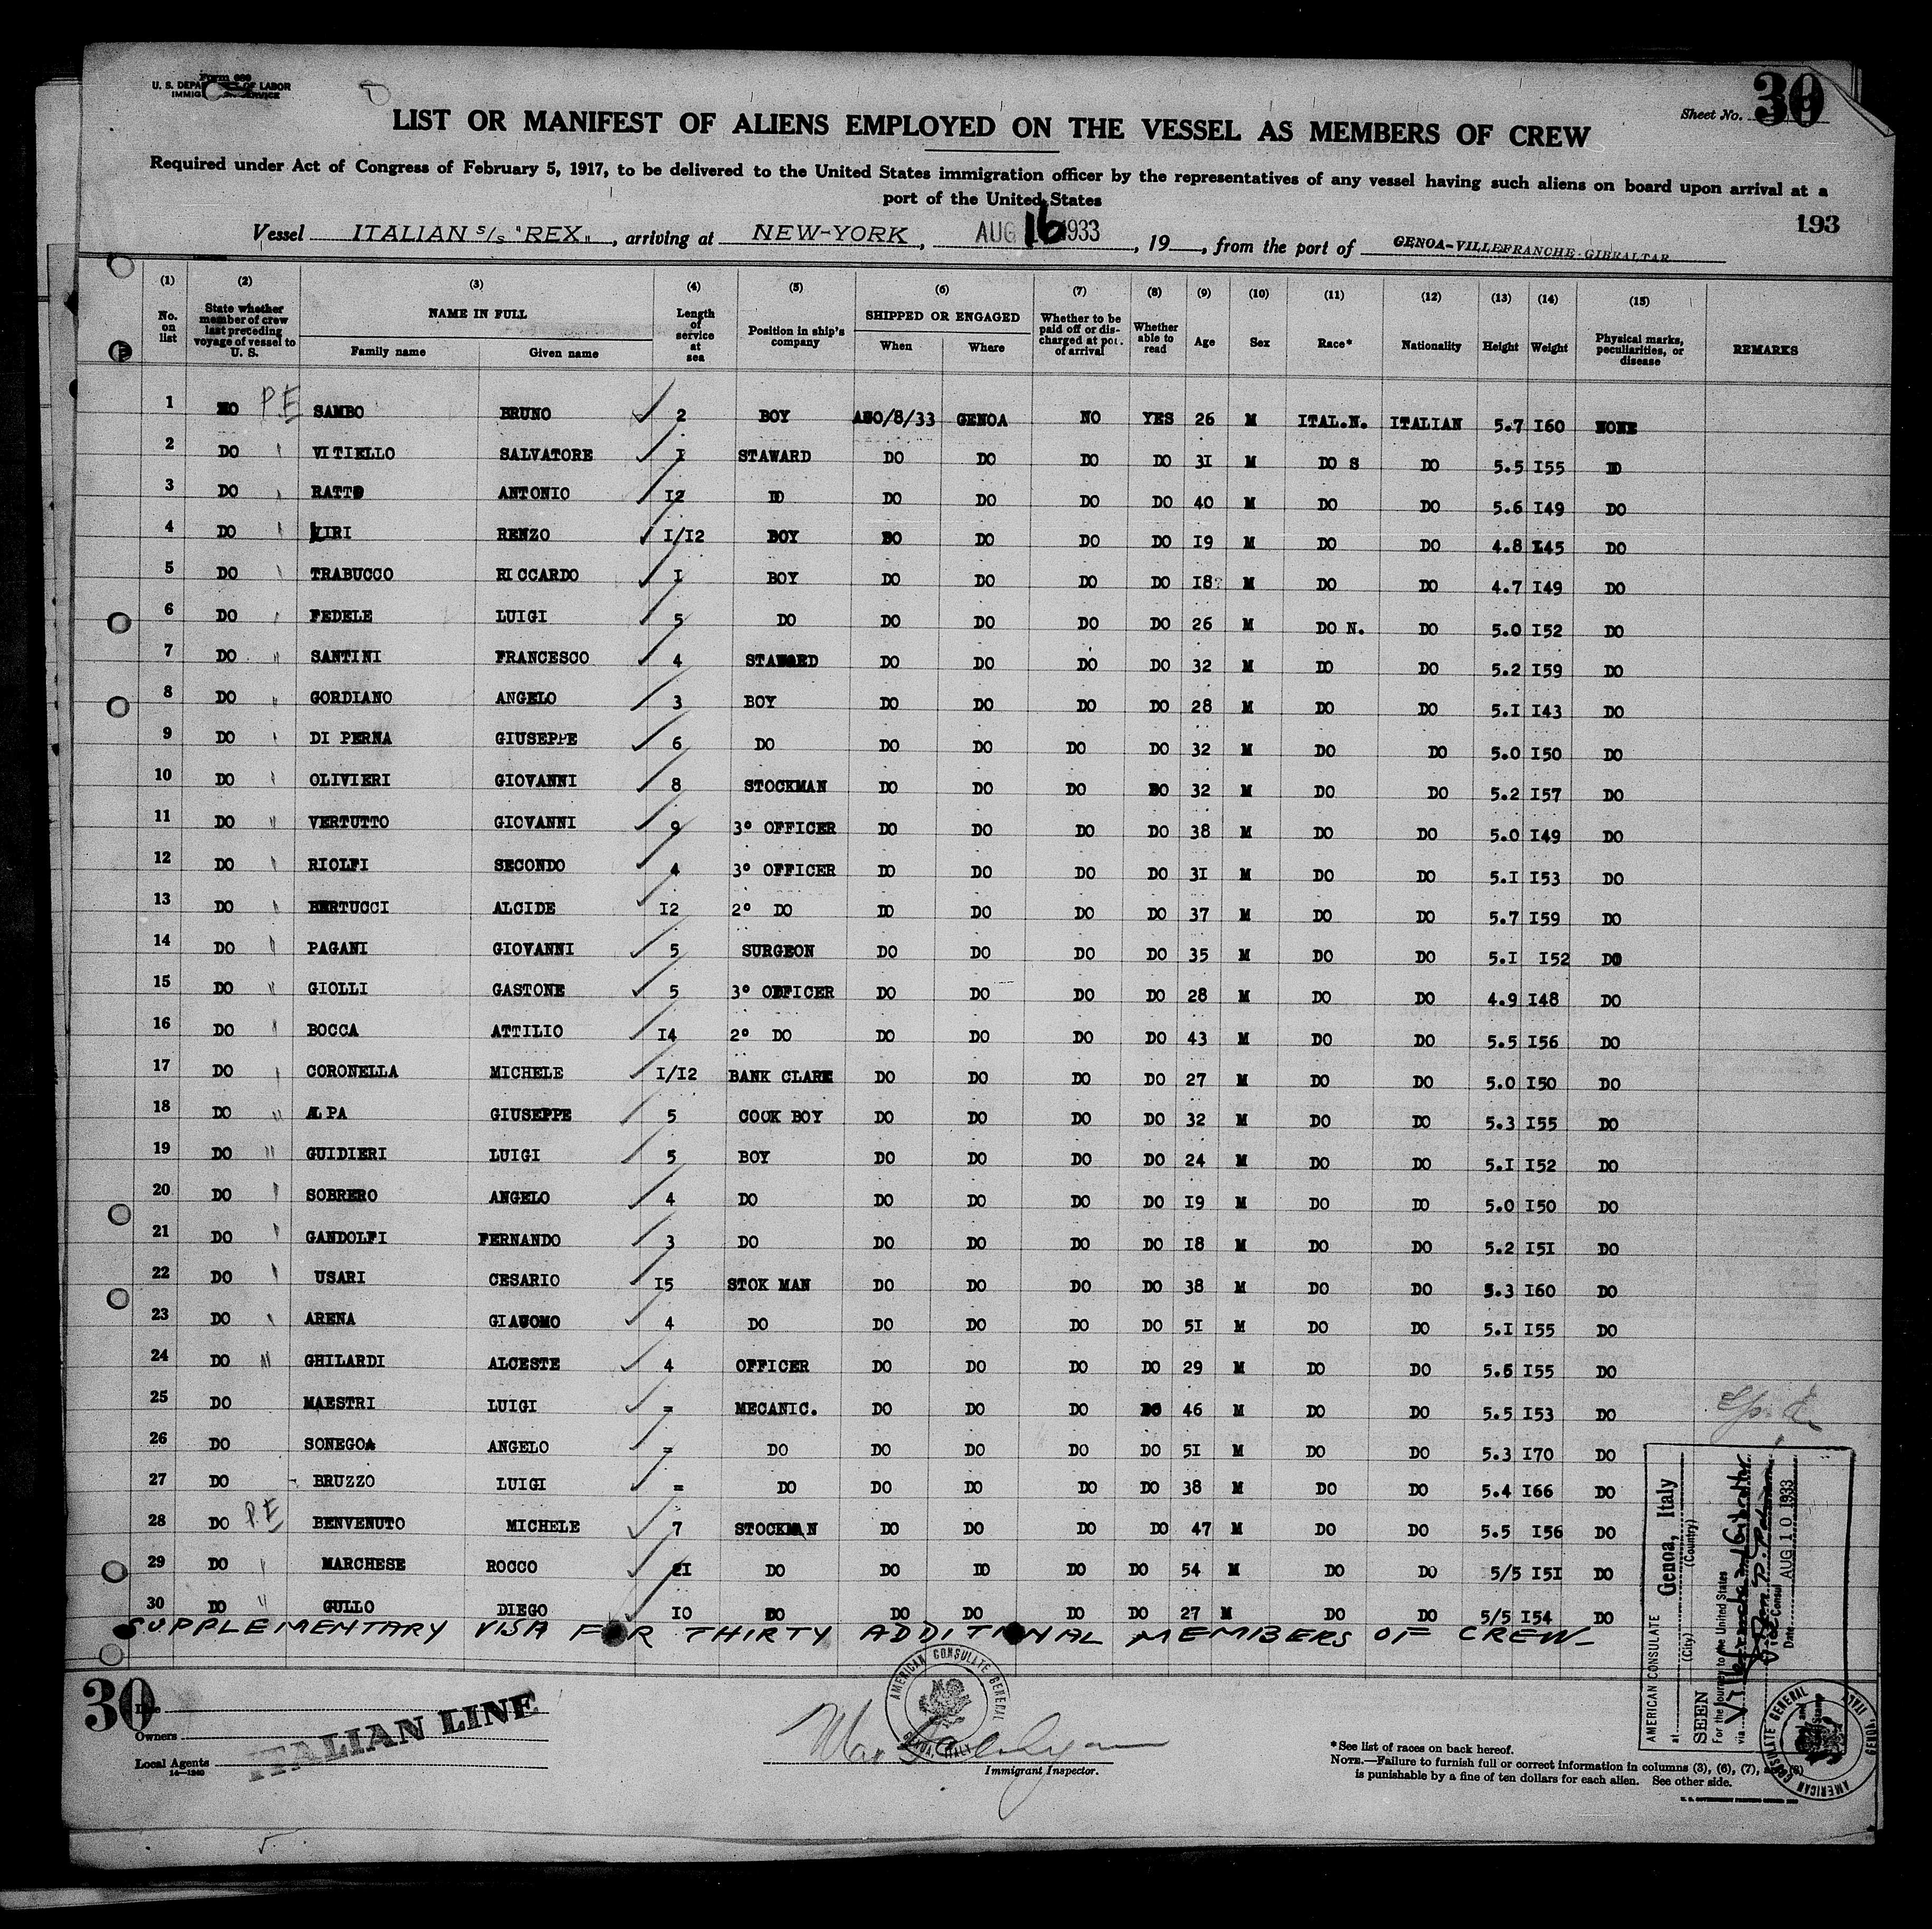 Form 680
U. S. DEPA OF LABOR
IMMIG SERVICE
Sheet No. 30
LIST OR MANIFEST OF ALIENS EMPLOYED ON THE VESSEL AS MEMBERS OF CREW
Required under Act of Congress of February 5, 1917, to be delivered to the United States immigration officer by the representatives of any vessel having such aliens on board upon arrival at a
port of the United States
193
Vessel ITALIAN S/S "REX", arriving at NEW-YORK, AUG 16 1933, 19 , from the port of GENOA-VILLEFRANCHE-GIBRALTAR
(1) (2) (3) (4) (5) (6) (7) (8) (9) (10) (11) (12) (13) (14) (15)
No. on list State whether member of crew last preceding voyage of vessel to U. S. NAME IN FULL Family name Given name Length of service at sea Position in ship's company SHIPPED OR ENGAGED When Where Whether to be paid off or discharged at port of arrival Whether able to read Age Sex Race* Nationality Height Weight Physical marks, peculiarities, or disease REMARKS
1 NO P.E SAMBO BRUNO 2 BOY AGO/8/33 GENOA NO YES 26 M ITAL.N. ITALIAN 5.7 I60 NONE
2 DO VITIELLO SALVATORE I STAWARD DO DO DO DO 3I M DO S DO 5.5 I55 D
3 DO RATTO ANTONIO I2 D DO DO DO DO 40 M DO DO 5.6 I49 DO
4 DO VIRI RENZO I/I2 BOY DO DO DO DO I9 M DO DO 4.8 I45 DO
5 DO TRABUCCO RICCARDO I BOY DO DO DO DO I8? M DO DO 4.7 I49 DO
6 DO FEDELE LUIGI 5 DO DO DO DO DO 26 M DO N. DO 5.0 I52 DO
7 DO SANTINI FRANCESCO 4 STAWARD DO DO DO DO 32 M DO DO 5.2 I59 DO
8 DO GORDIANO ANGELO 3 BOY DO DO DO DO 28 M DO DO 5.I I43 DO
9 DO DI PERNA GIUSEPPE 6 DO DO DO DO DO 32 M DO DO 5.0 I50 DO
10 DO OLIVIERI GIOVANNI 8 STOCKMAN DO DO DO DO 32 M DO DO 5.2 I57 DO
11 DO VERTUTTO GIOVANNI 9 3° OFFICER DO DO DO DO 38 M DO DO 5.0 I49 DO
12 DO RIOLFI SECONDO 4 3° OFFICER DO DO DO DO 3I M DO DO 5.I I53 DO
13 DO BERTUCCI ALCIDE I2 2° DO DO DO DO DO 37 M DO DO 5.7 I59 DO
14 DO PAGANI GIOVANNI 5 SURGEON DO DO DO DO 35 M DO DO 5.I I52 DO
15 DO GIOLLI GASTONE 5 3° OFFICER DO DO DO DO 28 M DO DO 4.9 I48 DO
16 DO BOCCA ATTILIO I4 2° DO DO DO DO DO 43 M DO DO 5.5 I56 DO
17 DO CORONELLA MICHELE I/I2 BANK CLARK DO DO DO DO 27 M DO DO 5.0 I50 DO
18 DO ALPA GIUSEPPE 5 COOK BOY DO DO DO DO 32 M DO DO 5.3 I55 DO
19 DO GUIDIERI LUIGI 5 BOY DO DO DO DO 24 M DO DO 5.I I52 DO
20 DO SOBRERO ANGELO 4 DO DO DO DO DO I9 M DO DO 5.0 I50 DO
21 DO GANDOLFI FERNANDO 3 DO DO DO DO DO I8 M DO DO 5.2 I5I DO
22 DO USARI CESARIO I5 STOK MAN DO DO DO DO 38 M DO DO 5.3 I60 DO
23 DO ARENA GIACOMO 4 DO DO DO DO DO 5I M DO DO 5.I I55 DO
24 DO GHILARDI ALCESTE 4 OFFICER DO DO DO DO 29 M DO DO 5.6 I55 DO
25 DO MAESTRI LUIGI = MECANIC. DO DO DO DO 46 M DO DO 5.5 I53 DO
26 DO SONEGOA ANGELO = DO DO DO DO DO 5I M DO DO 5.3 I70 DO
27 DO BRUZZO LUIGI = DO DO DO DO DO 38 M DO DO 5.4 I66 DO
28 DO P.E BENVENUTO MICHELE 7 STOCKMAN DO DO DO DO 47 M DO DO 5.5 I56 DO
29 DO MARCHESE ROCCO 2I DO DO DO DO DO 54 M DO DO 5/5 I5I DO
30 DO GULLO DIEGO I0 DO DO DO DO DO 27 M DO DO 5/5 I54 DO
SUPPLEMENTARY VISA FOR THIRTY ADDITIONAL MEMBERS OF CREW
AMERICAN CONSULATE
at Genoa, Italy
(City) (Country)
SEEN
For the journey to the United States
via Villefranche and Gibraltar
Vice Consul
Date AUG 10 1933
AMERICAN CONSULATE GENERAL
GENOA, ITALY
30
Date
Owners
Local Agents
14—1240
ITALIAN LINE
AMERICAN CONSULATE GENERAL
GENOA, ITALY
Immigrant Inspector.
*See list of races on back hereof.
NOTE.—Failure to furnish full or correct information in columns (3), (6), (7), (8)
is punishable by a fine of ten dollars for each alien. See other side.